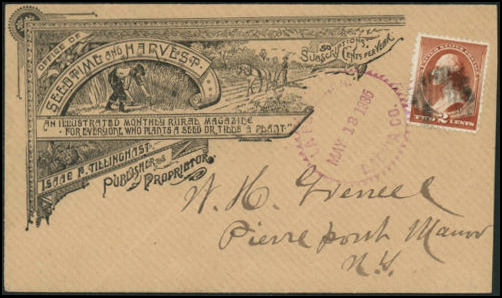 OFFICE OF
SEED-TIME AND HARVEST.
SUBSCRIPTION
50 CENTS PER YEAR.
AN ILLUSTRATED MONTHLY RURAL MAGAZINE
"FOR EVERYONE WHO PLANTS A SEED OR TILLS A PLANT."
ISAAC F. TILLINGHAST.
PUBLISHER AND
PROPRIETOR.
MAY 18 1885
TWO 2 CENTS
W. H. Grenell
Pierre pont Manor
N.Y.